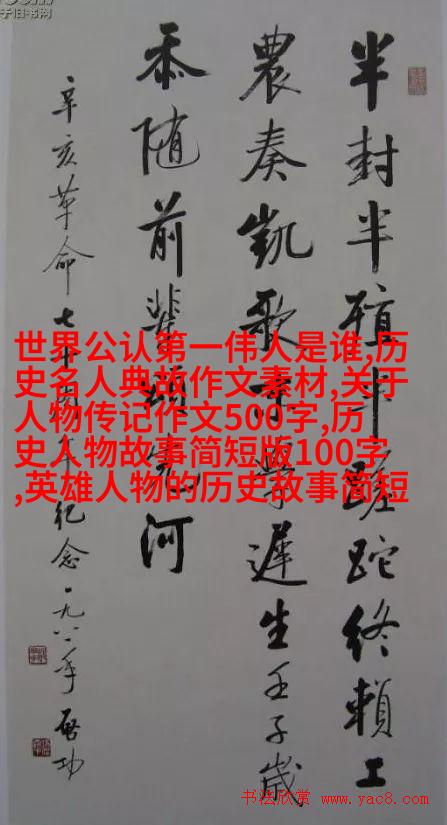 子旧书网
半封半殖半蹉跎终赖工
農奏凱歌末學遲生壬子歲
忝随前輩頌先河
辛亥革命七十周年紀念一九八一年 啟功
世界公认第一伟人是谁,历
史名人典故作文素材,关于
人物传记作文500字,历
史人物故事简短版100字
,英雄人物的历史故事简短
书法欣赏 www.yac8.com